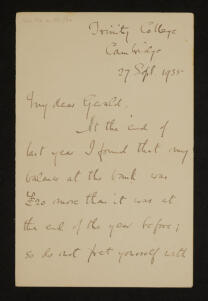 Trinity College
Cambridge
27 Sept. 1935
My dear Gerald,
At the end of
last year I found that my
balance at the bank was
£20 more than it was at
the end of the year before;
so do not fret yourself with